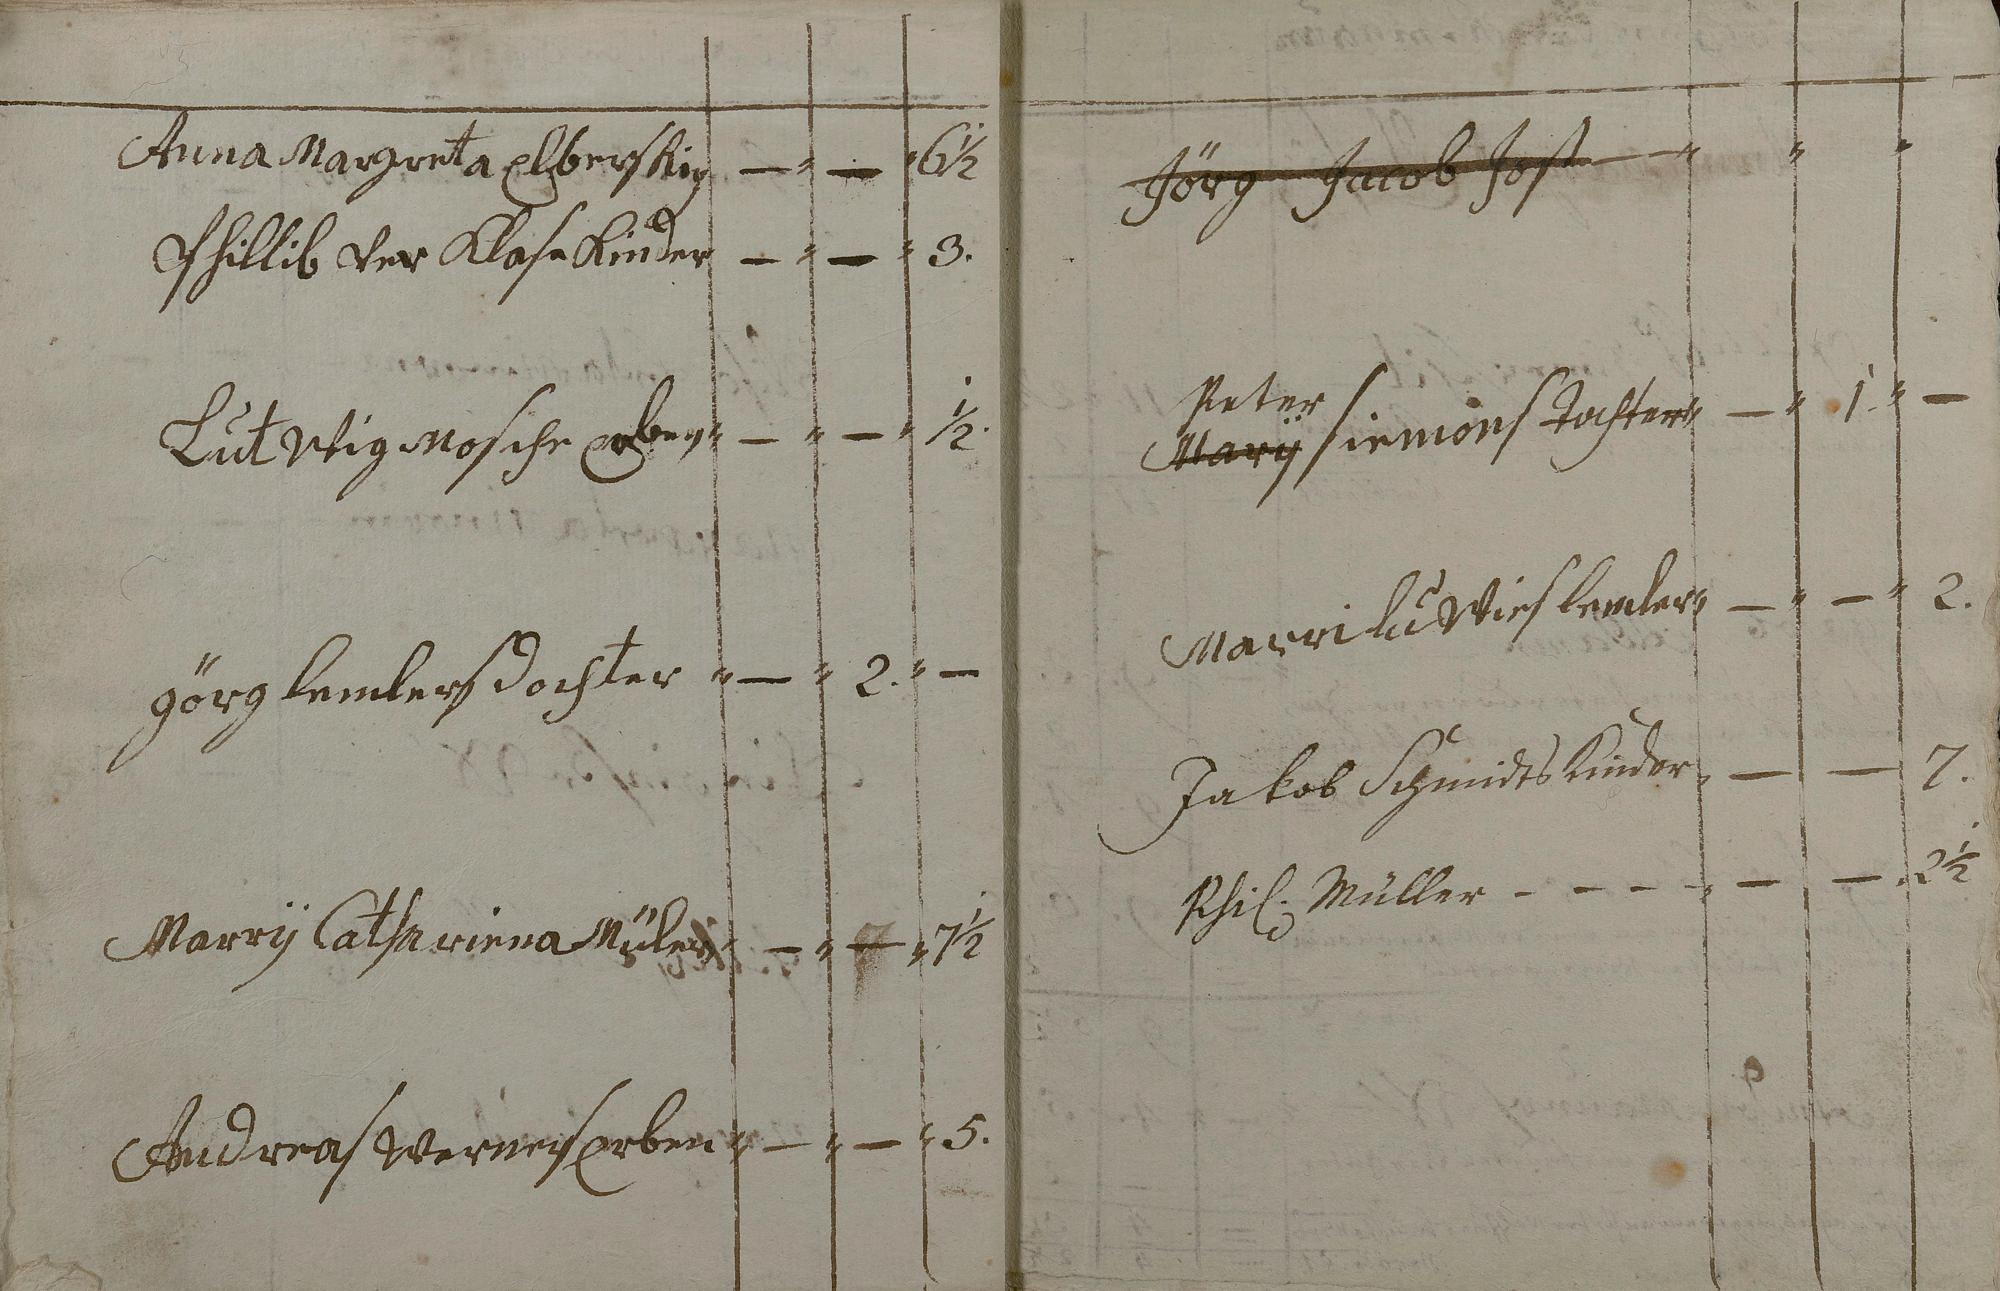 Anna Margreta Elberskirg — " — " 6½
Phillib ver Klase Kinder — " — " 3.
Lutwig Mosche erben " — " — " ½.
görg lemlers Dochter " — " 2. " —
Marrÿ Cathariena Müler " — " — " 7½
Andreas werners erben " — " — " 5.
Jörg Jacob Jost — " " "
Peter
Marÿ siemons Tochter " — " 1. " —
Marri luwies lemler " — " — " 2.
Jakob Schmidts Kinder " — — 7.
Phil. Müller - - - - - — — . 2½